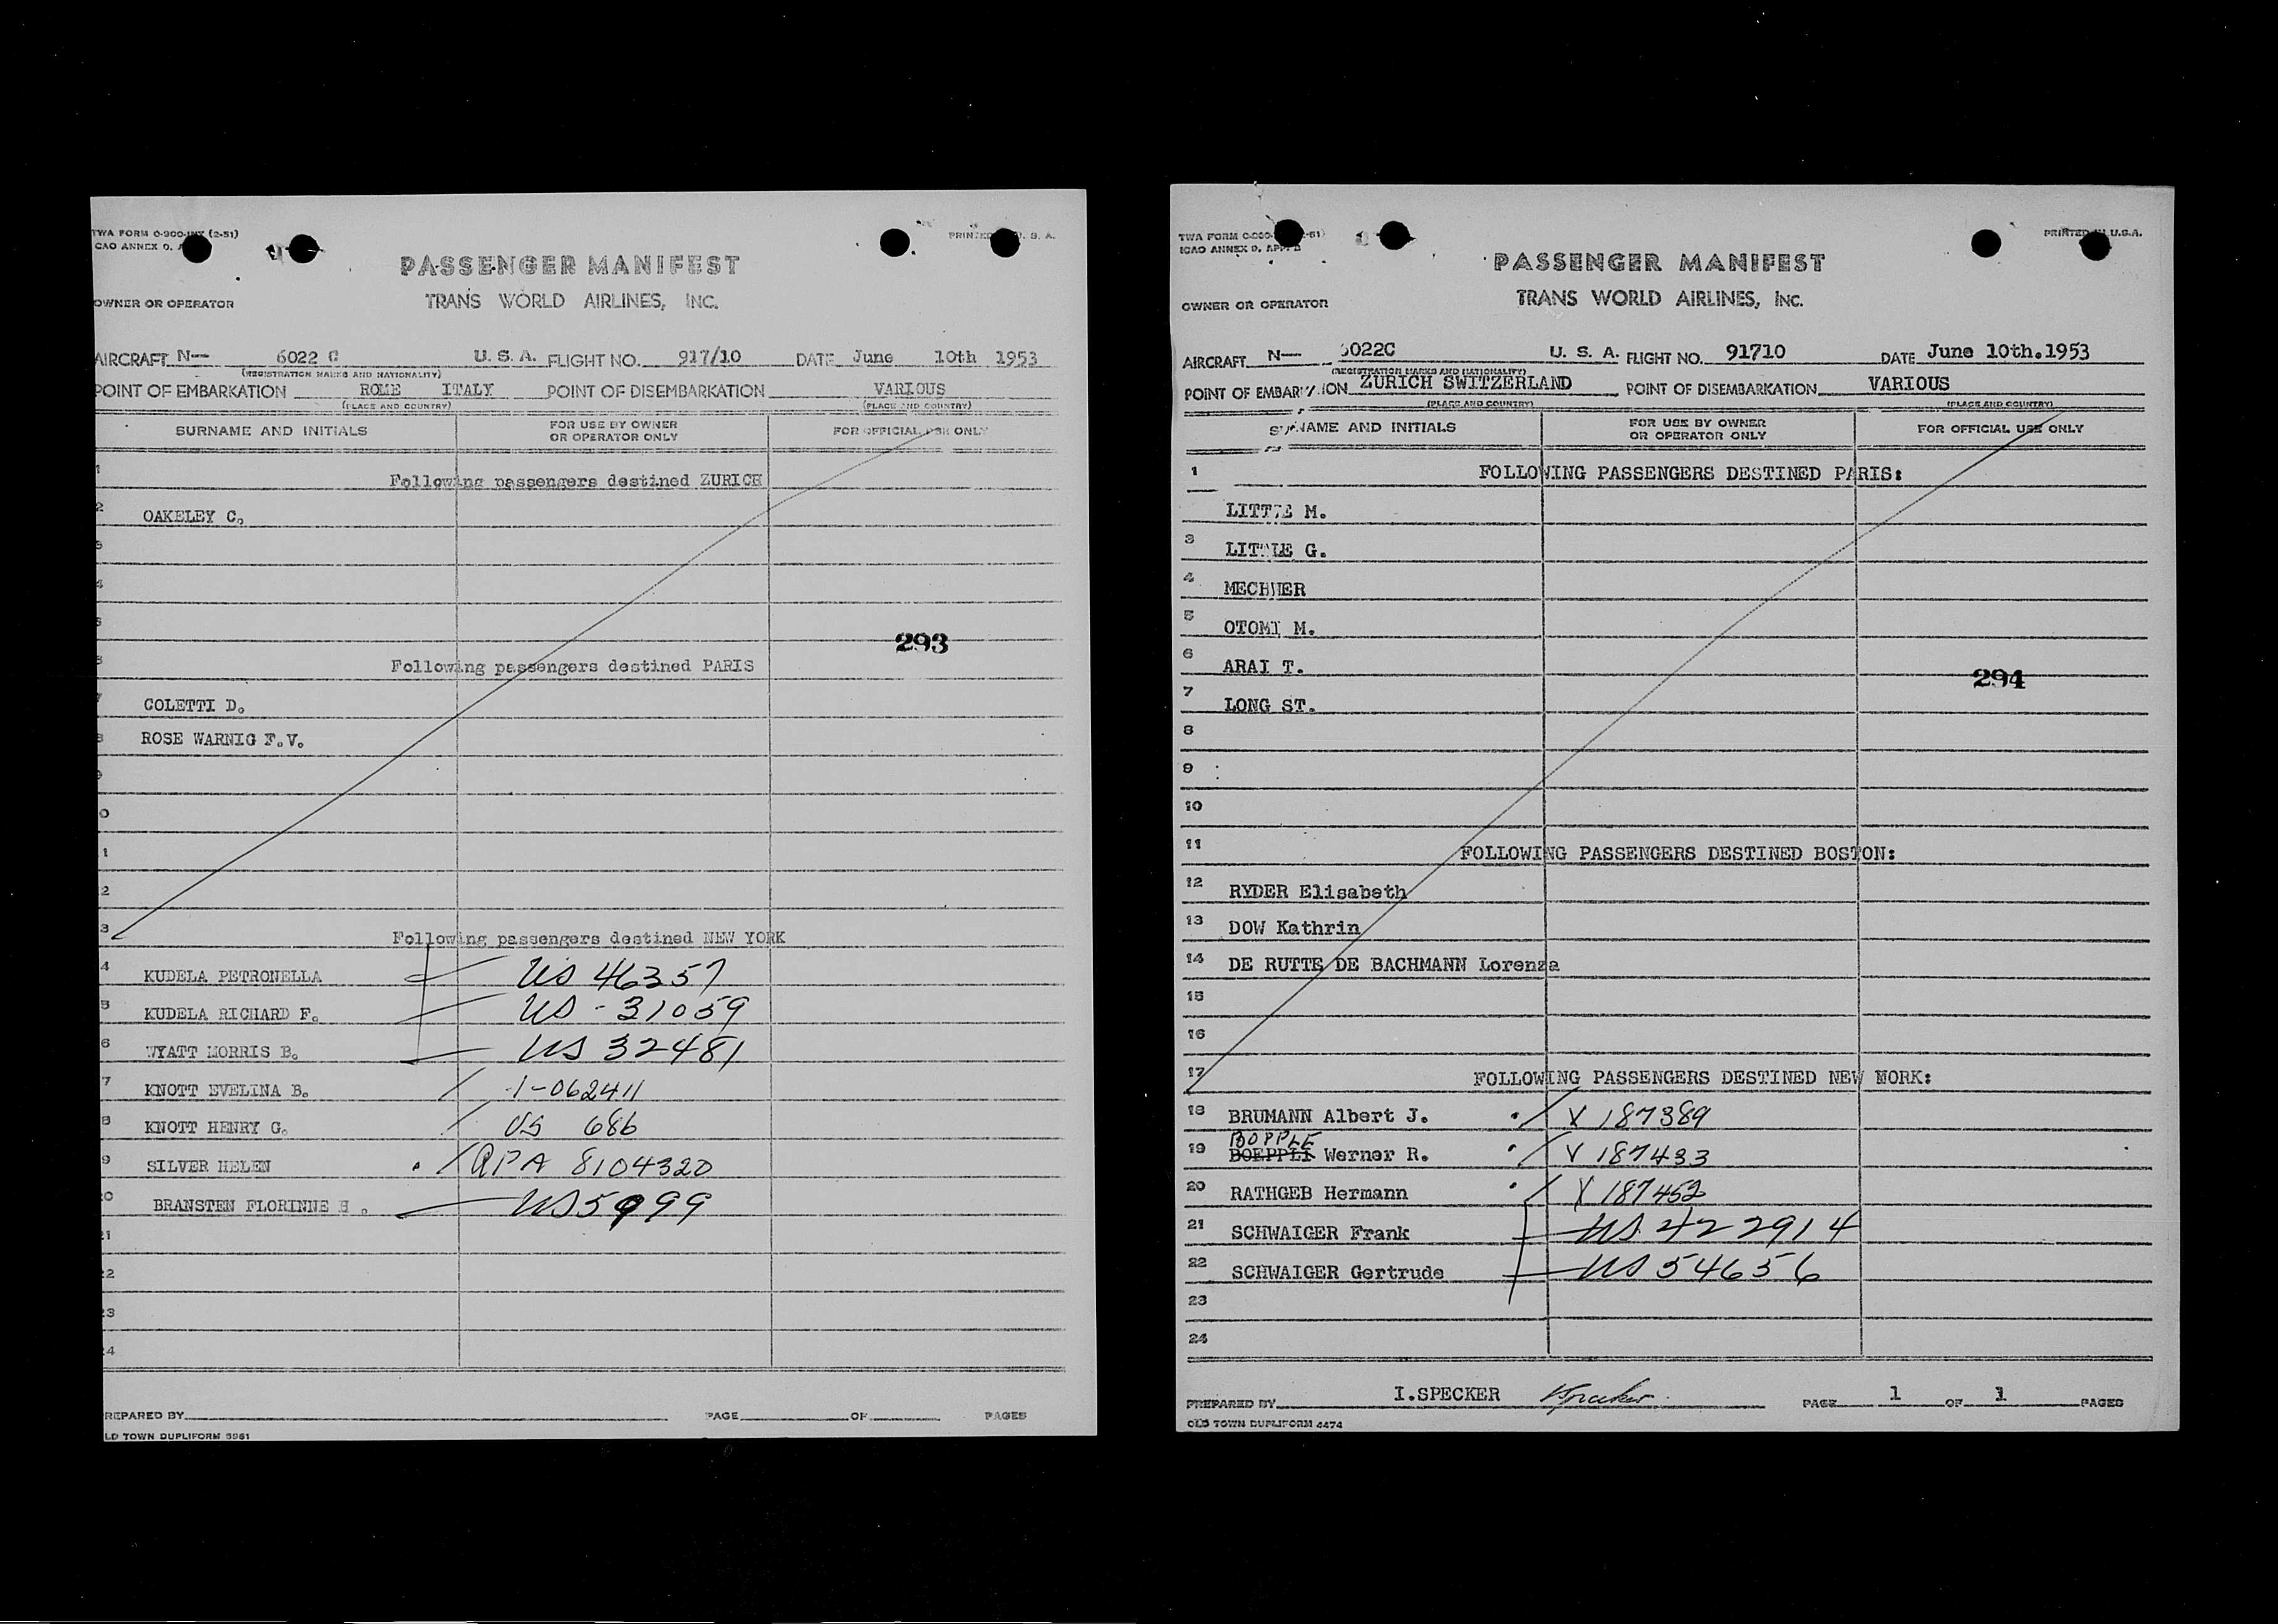 TWA FORM 0-900-INT (2-51)
CAO ANNEX 9, A
PRINTED U. S. A.
PASSENGER MANIFEST
OWNER OR OPERATOR TRANS WORLD AIRLINES, INC.
AIRCRAFT N-- 6022 C U. S. A. FLIGHT NO. 917/10 DATE June 10th 1953
(REGISTRATION MARKS AND NATIONALITY)
POINT OF EMBARKATION ROME ITALY POINT OF DISEMBARKATION VARIOUS
(PLACE AND COUNTRY) (PLACE AND COUNTRY)
SURNAME AND INITIALS FOR USE BY OWNER OR OPERATOR ONLY FOR OFFICIAL USE ONLY
1 Following passengers destined ZURICH
2 OAKELEY C.
3
4
5
293
6 Following passengers destined PARIS
7 COLETTI D.
8 ROSE WARNIG F.V.
9
0
1
2
3 Following passengers destined NEW YORK
4 KUDELA PETRONELLA US 46357
5 KUDELA RICHARD F. US - 31059
6 WYATT MORRIS B. US 32481
7 KNOTT EVELINA B. 1-062411
8 KNOTT HENRY G. US 686
9 SILVER HELEN RPA 8104320
20 BRANSTEN FLORINNE H . US 5999
21
22
23
24
REPARED BY PAGE OF PAGES
LD TOWN DUPLIFORM 5961
TWA FORM 0-900 2-51)
ICAO ANNEX 9, APP. D
PRINTED IN U.S.A.
PASSENGER MANIFEST
OWNER OR OPERATOR TRANS WORLD AIRLINES, INC.
AIRCRAFT N-- 6022C U. S. A. FLIGHT NO. 91710 DATE June 10th.1953
(REGISTRATION MARKS AND NATIONALITY)
POINT OF EMBARKATION ZURICH SWITZERLAND POINT OF DISEMBARKATION VARIOUS
(PLACE AND COUNTRY) (PLACE AND COUNTRY)
SURNAME AND INITIALS FOR USE BY OWNER OR OPERATOR ONLY FOR OFFICIAL USE ONLY
1 FOLLOWING PASSENGERS DESTINED PARIS:
LITTLE M.
3 LITTLE G.
4 MECHNER
5 OTOMI M.
6 ARAI T.
294
7 LONG ST.
8
9 :
10
11 FOLLOWING PASSENGERS DESTINED BOSTON:
12 RYDER Elisabeth
13 DOW Kathrin
14 DE RUTTE DE BACHMANN Lorenza
15
16
17 FOLLOWING PASSENGERS DESTINED NEW WORK:
18 BRUMANN Albert J. V 187389
BOPPLE
19 BOEPPLI Werner R. V 187433
20 RATHGEB Hermann V 187452
21 SCHWAIGER Frank US 422914
22 SCHWAIGER Gertrude US 54656
23
24
PREPARED BY I.SPECKER Specker PAGE 1 OF 1 PAGES
OLD TOWN DUPLIFORM 4474